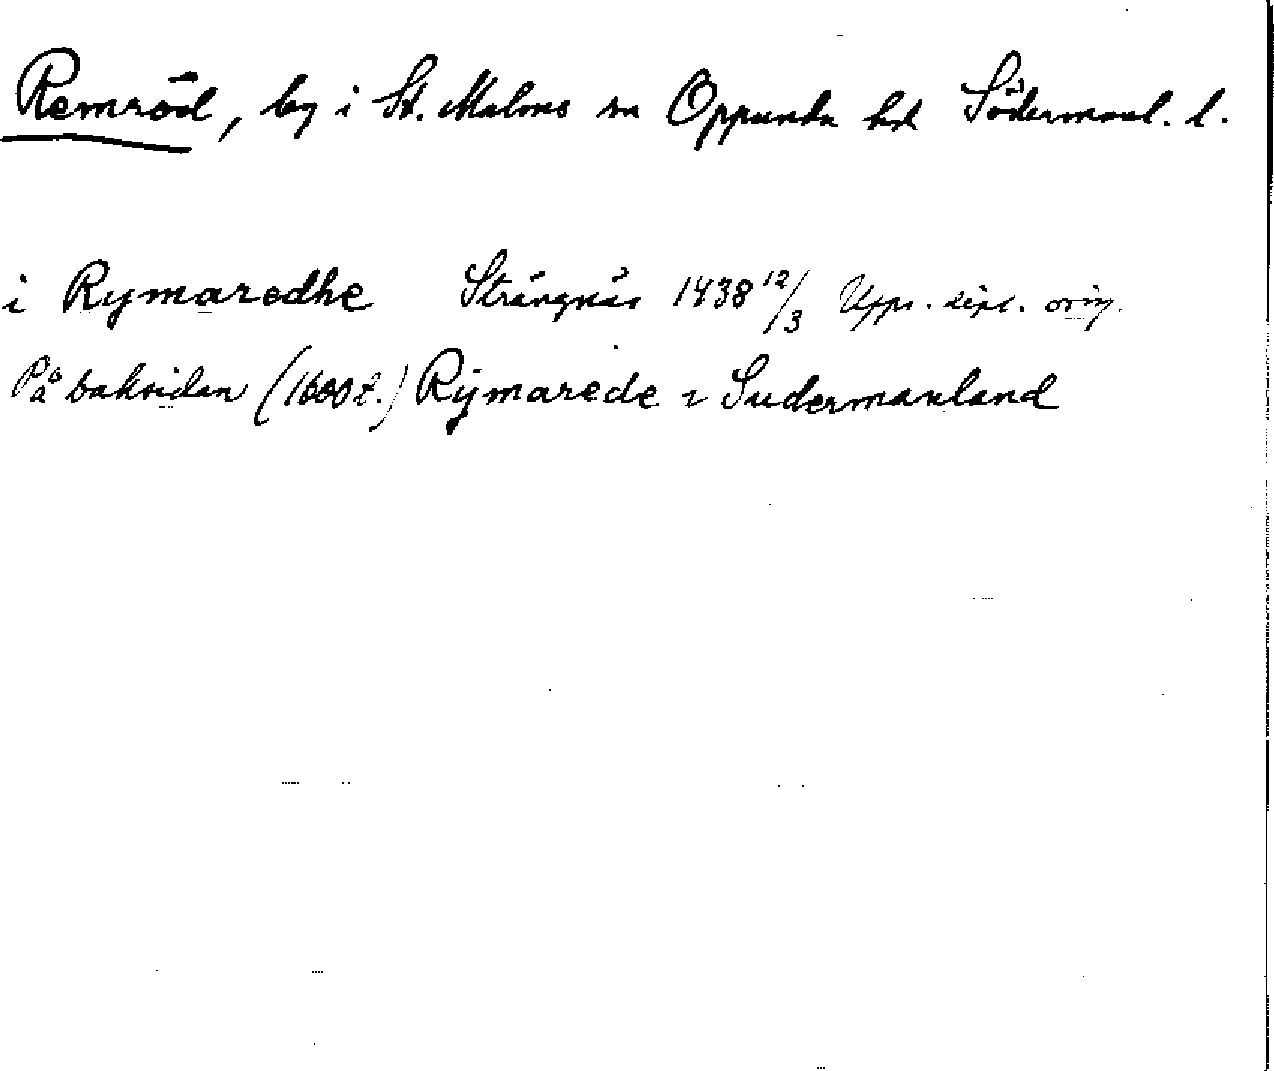 Remröd, by i St. Malms sn Oppunda hd Södermanl. l.
i Rymaredhe Strängnäs 1438 12/3 Upps. dipl. orig.
På baksidan (1600 t.) Rÿmarede i Sudermanland